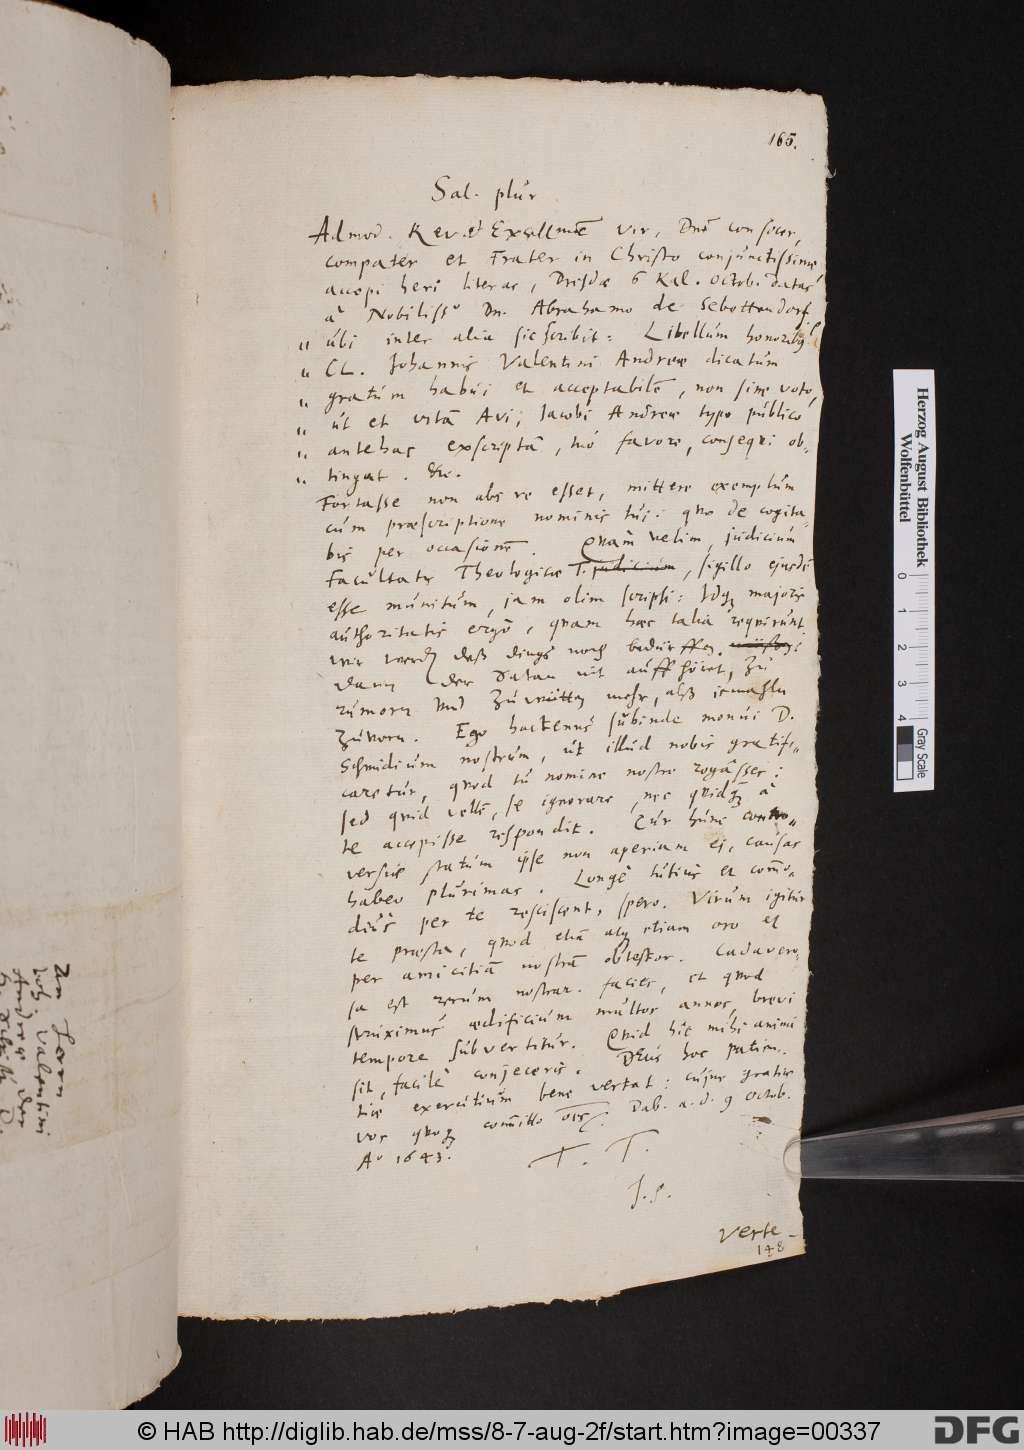 165.
Sal. plúr
Admod. Rev. et Excellme Vir, Dne consocer,
compater et Frater in Christo conjúnctissime
accepi heri literas, Dresdæ 6 Kal. Octobr. datas
à Nobiliss° Dn. Abrahamo de Sebottendorf
„ úbi inter alia sic scribit: Libellúm honoribq
„ CL. Johannis Valentini Andreæ dicatúm
„ gratúm habúi et acceptabilē, non sine voto,
„ út et vitā Avi, Jacobi Andreæ typo público
„ antehac exscriptā, túo favore, conseqvi ob-
„ tingat. &c.
Fortasse non abs re esset, mittere exemplúm
cúm præscriptione nominis túj: qvo de cogita-
bis per occasionē. Qvàm velim, júdiciúm
Facúltatis Theologicæ T. júdiciúm, sigillo ejúsdē
esse múnitúm, jam olim scripsi: Idq majoris
aúthoritatis ergò, qvam hæc talia reqvirúnt
wir werdē daß dings noch bedürffen.
dann der Satan nit aúffhöret, zú
rúmorn vnd zú wüttē mehr, alß jemahln
zúvorn. Ego hactenús súbinde monúi D.
Schmidiúm nostrúm, út illúd nobis gratifi-
caretúr, qvod tú nomine nostro rogâsses:
sed qvid vellē, se ignorare, nec qvidq à
te accepisse respondit. Cúr húnc contro-
versiæ statúm ipse non aperiam ei, caúsas
habeo plúrimas. Longè tútiús et com̄o-
diús per te resciscent, spero. Virúm igitúr
te præsta, qvod etiā atq etiam oro et
per amicitiā nostrā obtestor. Cadavero-
sa est rerúm nostrar. facies, et qvod
strúximús ædificiúm múltos annos, brevi
tempore súbvertitúr. Qvid hîc mihi animi
sit, facilè conjeceris. DEús hoc patien-
tiæ exercitiúm bene vertat: cújús gratiæ
vos qvoq com̄itto oēs. Dab. a. d. 9 Octob.
A° 1643.
T. T.
J. S.
Verte
148
An Herrn
Joh. Valentini
Andreæ der
Herzog August Bibliothek
Wolfenbüttel
0 1 2 3 4
Gray Scale
© HAB http://diglib.hab.de/mss/8-7-aug-2f/start.htm?image=00337
DFG